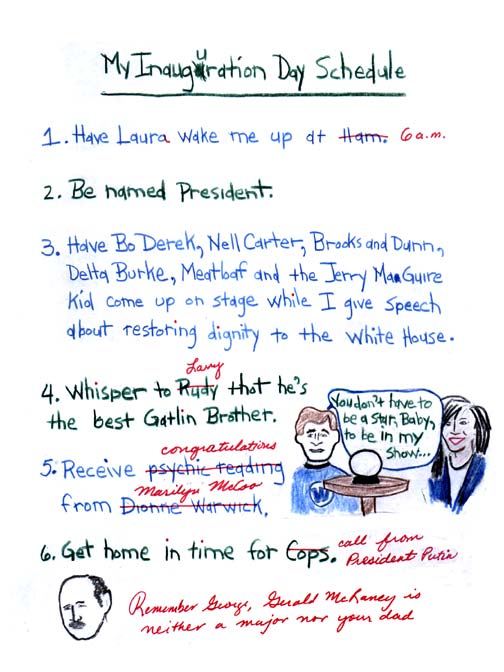 My Inauguration Day Schedule
1. Have Laura wake me up at 11am. 6 a.m.
2. Be named President.
3. Have Bo Derek, Nell Carter, Brooks and Dunn,
Delta Burke, Meatloaf and the Jerry MaaGuire
Kid come up on stage while I give speech
about restoring dignity to the White House.
Larry
4. Whisper to Rudy that he's
the best Gatlin Brother.
You don't have to
be a star, Baby,
to be in my
show...
W
congratulations
5. Receive psychic reading
Marilyn McCoo
from Dionne Warwick,
6. Get home in time for Cops. call from
President Putin
Remember George, Gerald McRaney is
neither a major nor your dad